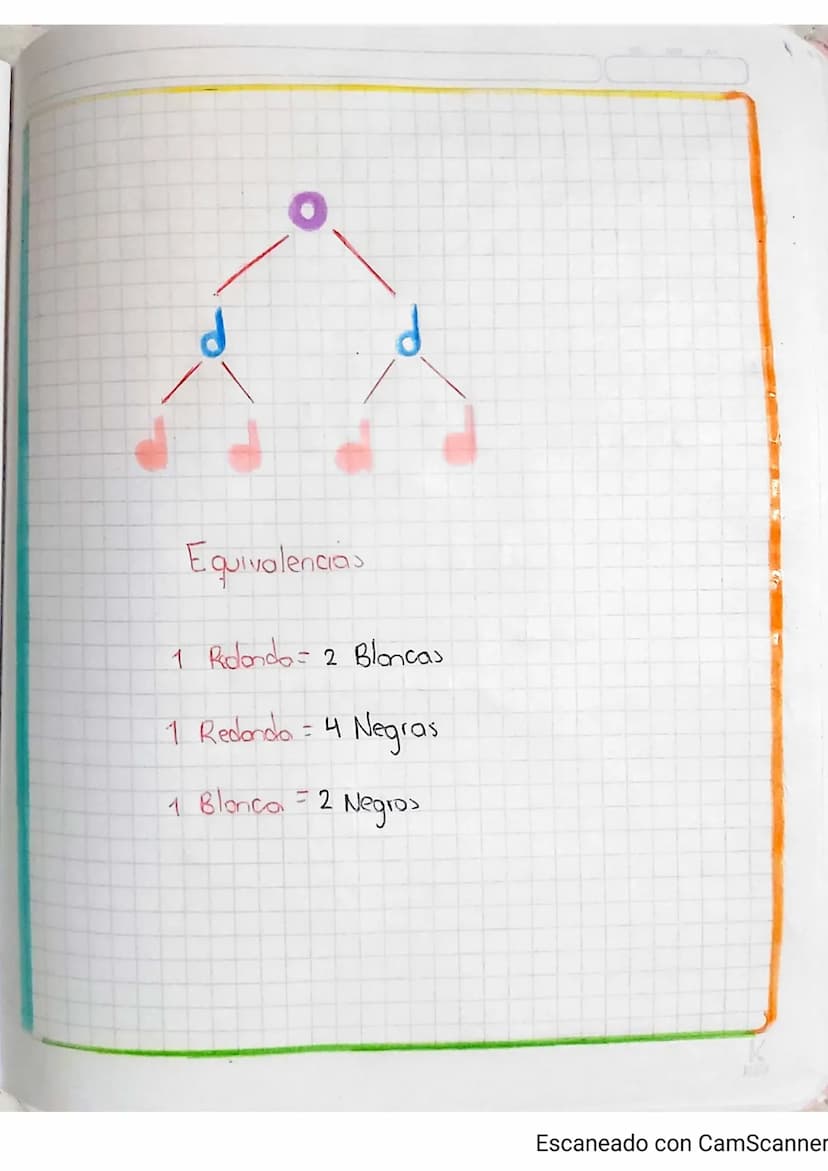 Equivalencias
1 Redonda = 2 Blancas
1 Redonda = 4 Negras
1 Blanca = 2 Negras
Escaneado con CamScanner